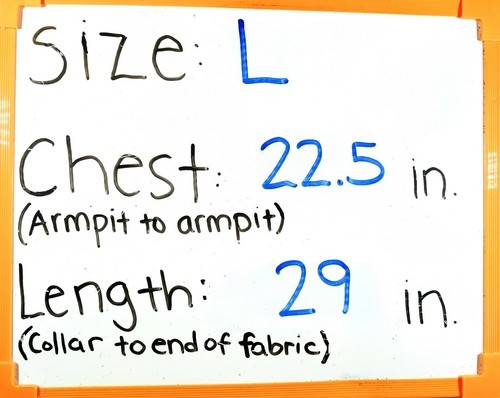 Size: L
Chest: 22.5 in.
(Armpit to armpit)
Length: 29 in.
(Collar to end of fabric)